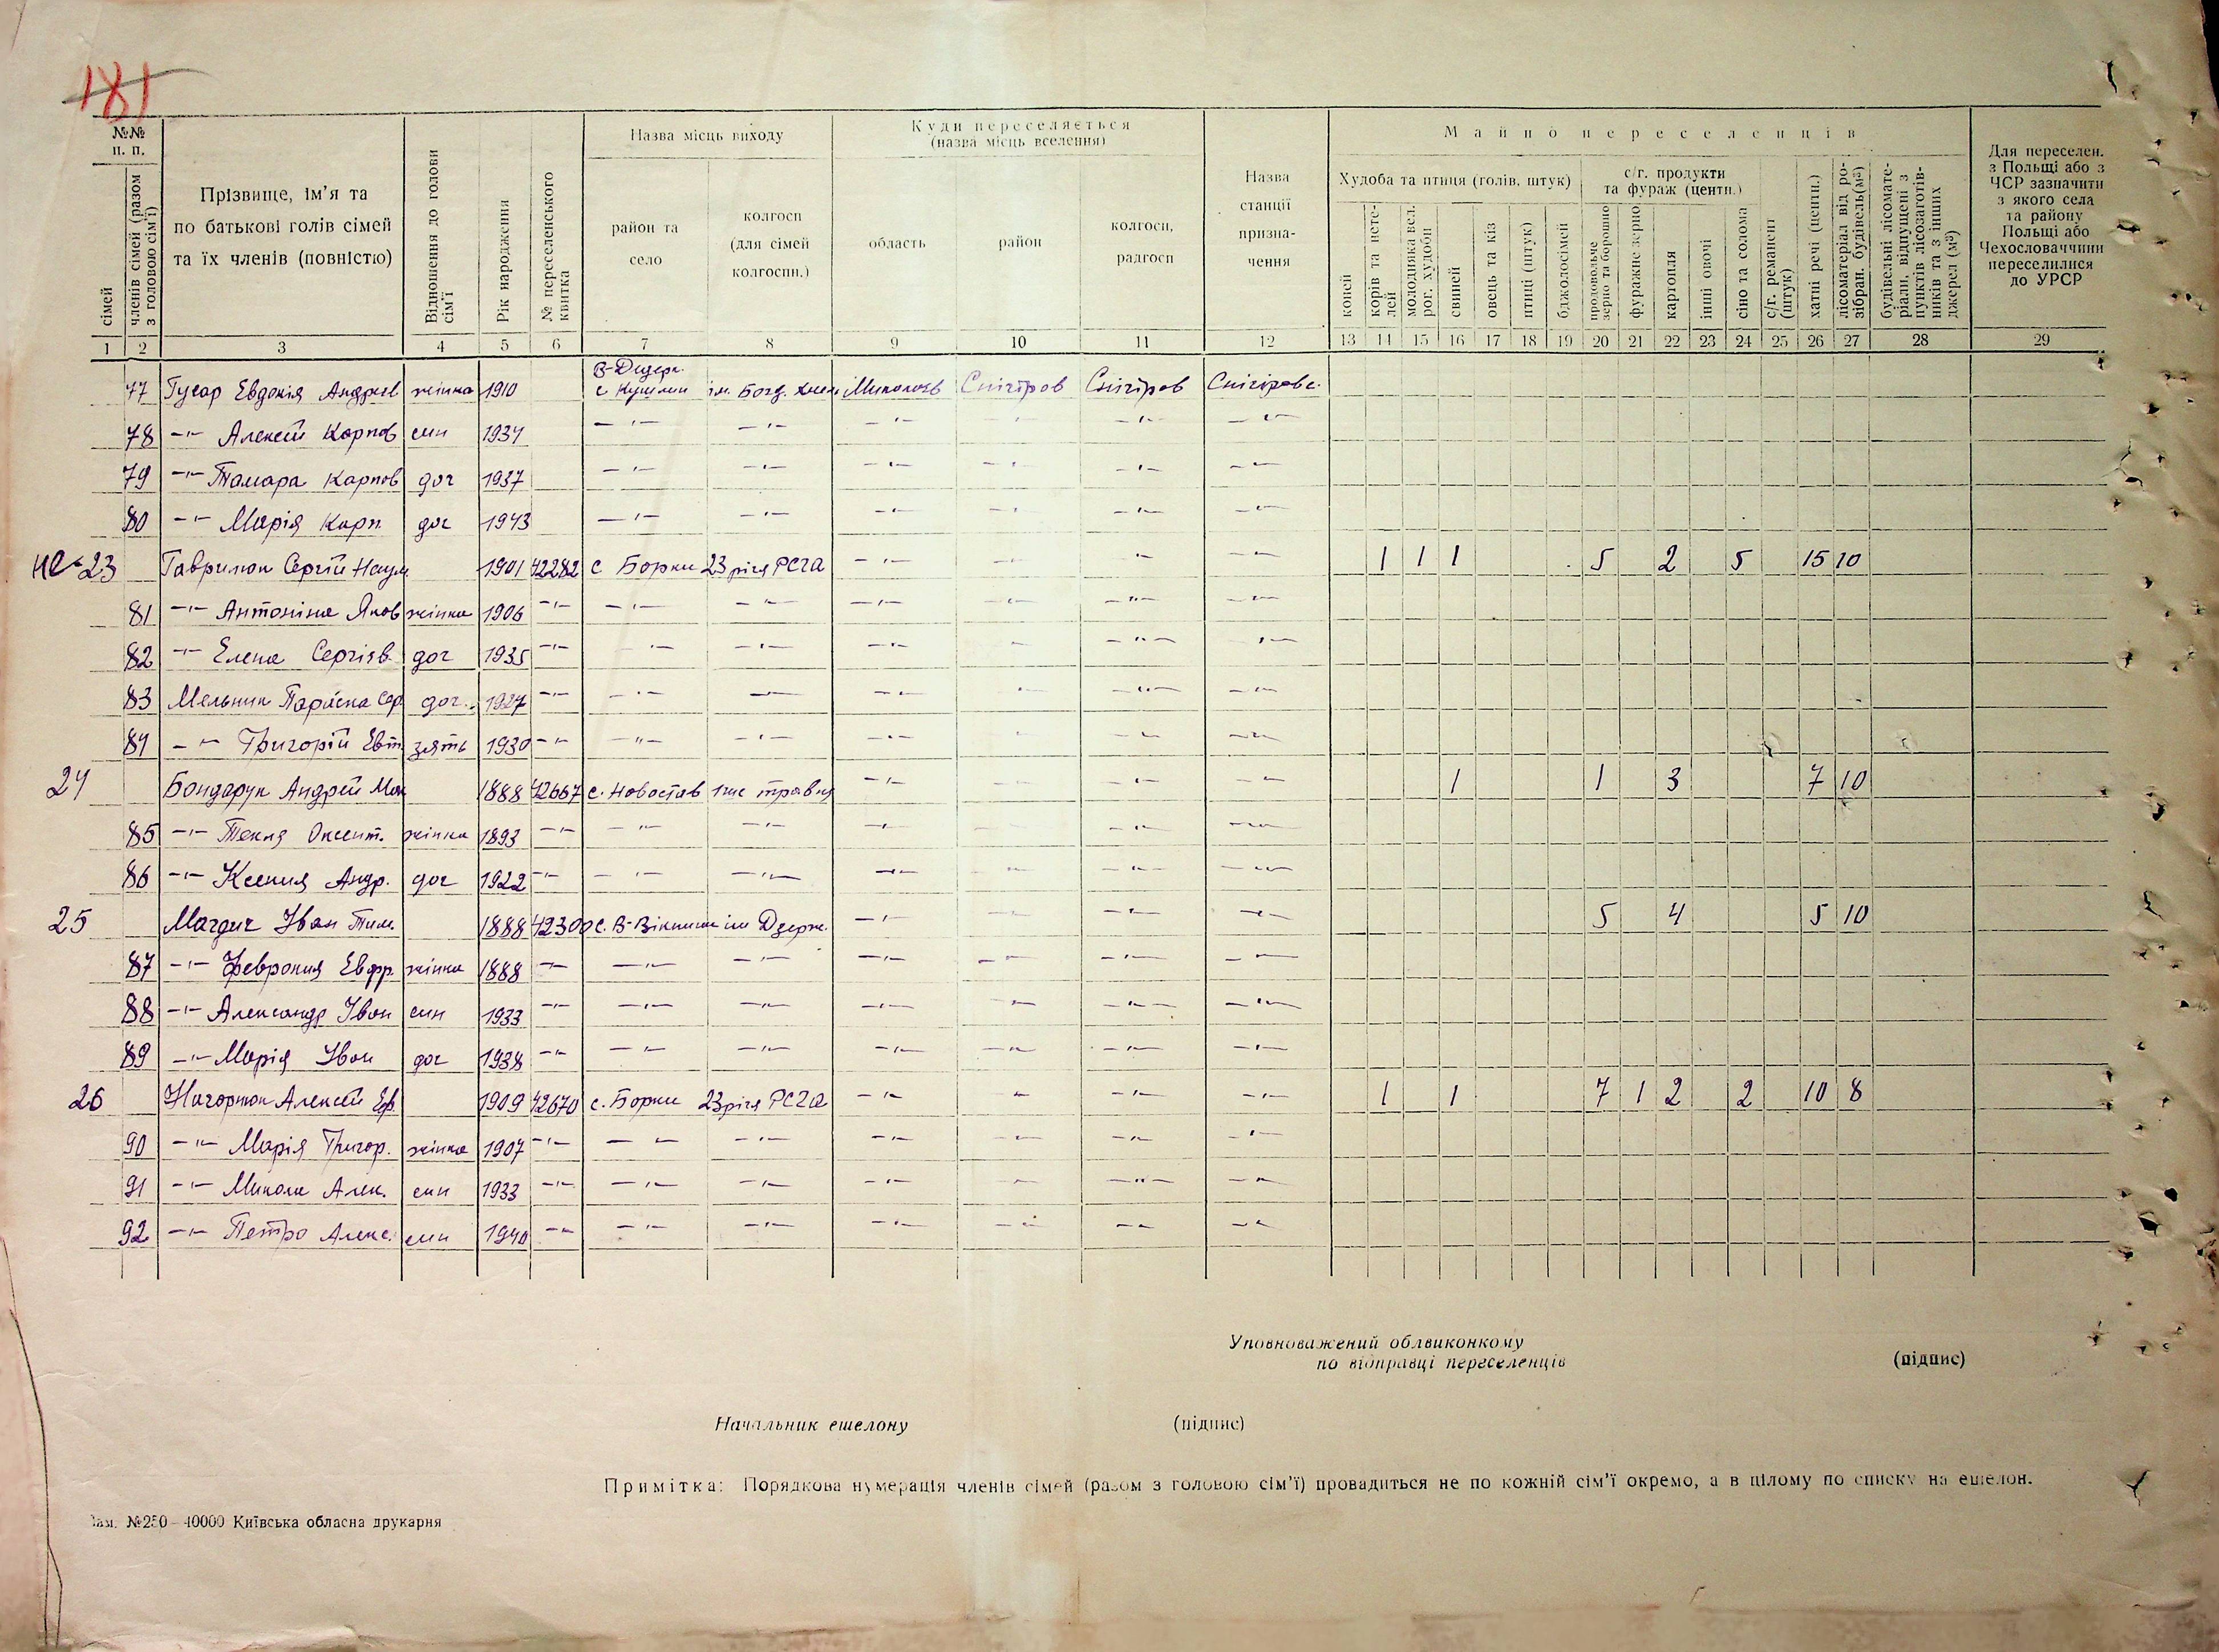 181
№№ п. п.
сімей
членів сімей (разом з головою сім'ї)
Прізвище, ім'я та по батькові голів сімей та їх членів (повністю)
Відношення до голови сім'ї
Рік народження
№ переселенського квитка
Назва місць виходу
район та село
колгосп (для сімей колгоспн.)
Куди переселяється (назва місць вселення)
область
район
колгосп, радгосп
Назва станції призначення
Майно переселенців
Худоба та птиця (голів, штук)
коней
корів та нетелей
молодняка вел. рог. худоби
свиней
овець та кіз
птиці (штук)
бджолосімей
с/г. продукти та фураж (центн.)
продовольче зерно та борошно
фуражне зерно
картопля
інші овочі
сіно та солома
с/г. реманент (штук)
хатні речі (центн.)
лісоматеріал від розібран. будівель (м³)
будівельні лісоматеріали, відпущені з пунктів лісозаготівників та з інших джерел (м³)
Для переселен. з Польщі або з ЧСР зазначити з якого села та району Польщі або Чехословаччини переселилися до УРСР
1 2 3 4 5 6 7 8 9 10 11 12 13 14 15 16 17 18 19 20 21 22 23 24 25 26 27 28 29
77 Гусар Евдокія Андріев жінка 1910 В-Дедерк. с Кушлин ім. Богд. Хмел Миколаєв Снігіров Снігіров Снігіровс.
78 -"- Алексій Карпов син 1934 -"- -"- -"- -"- -"-
79 -"- Тамара Карпов доч 1937 -"- -"- -"- -"- -"- -"-
80 -"- Марія Карп доч 1943 -"- -"- -"- -"- -"- -"-
23 Гаврилюк Сергій Наум 1901 42282 с Борки 23 річя РСЧА -"- -"- -"- -"- 1 1 1 5 2 5 15 10
81 -"- Антоніна Яков жінка 1906 -"- -"- -"- -"- -"- -"- -"-
82 -"- Елена Сергієв доч 1935 -"- -"- -"- -"- -"- -"- -"-
83 Мельник Параска Сер доч. 1927 -"- -"- -"- -"- -"- -"- -"-
84 -"- Григорій Евт. зять 1930 -"- -"- -"- -"- -"- -"- -"-
24 Бондарук Андрей Мак 1888 42667 с. Новостав 1ше травня -"- -"- -"- 1 1 3 7 10
85 -"- Текля Оксент. жінка 1893 -"- -"- -"- -"- -"- -"-
86 -"- Ксения Андр. доч 1922 -"- -"- -"- -"- -"- -"- -"-
25 Магдич Іван Тим. 1888 42300 с. В-Вікнини ім Дзерж. -"- -"- -"- -"- 5 4 5 10
87 -"- Феврония Евфр. жінка 1888 -"- -"- -"- -"- -"- -"- -"-
88 -"- Александр Іван син 1933 -"- -"- -"- -"- -"- -"- -"-
89 -"- Марія Іван доч 1938 -"- -"- -"- -"- -"- -"- -"-
26 Нагорнюк Алексей Еф. 1909 42670 с. Борки 23 річя РСЧА -"- -"- -"- -"- 1 1 7 1 2 2 10 8
90 -"- Марія Григор. жінка 1907 -"- -"- -"- -"- -"- -"- -"-
91 -"- Микола Алек. син 1933 -"- -"- -"- -"- -"- -"- -"-
92 -"- Петро Алекс. син 1940 -"- -"- -"- -"- -"- -"- -"-
Уповноважений облвиконкому
по відправці переселенців (підпис)
Начальник ешелону (підпис)
Примітка: Порядкова нумерація членів сімей (разом з головою сім'ї) провадиться не по кожній сім'ї окремо, а в цілому по списку на ешелон.
Зам. №250—40000 Київська обласна друкарня